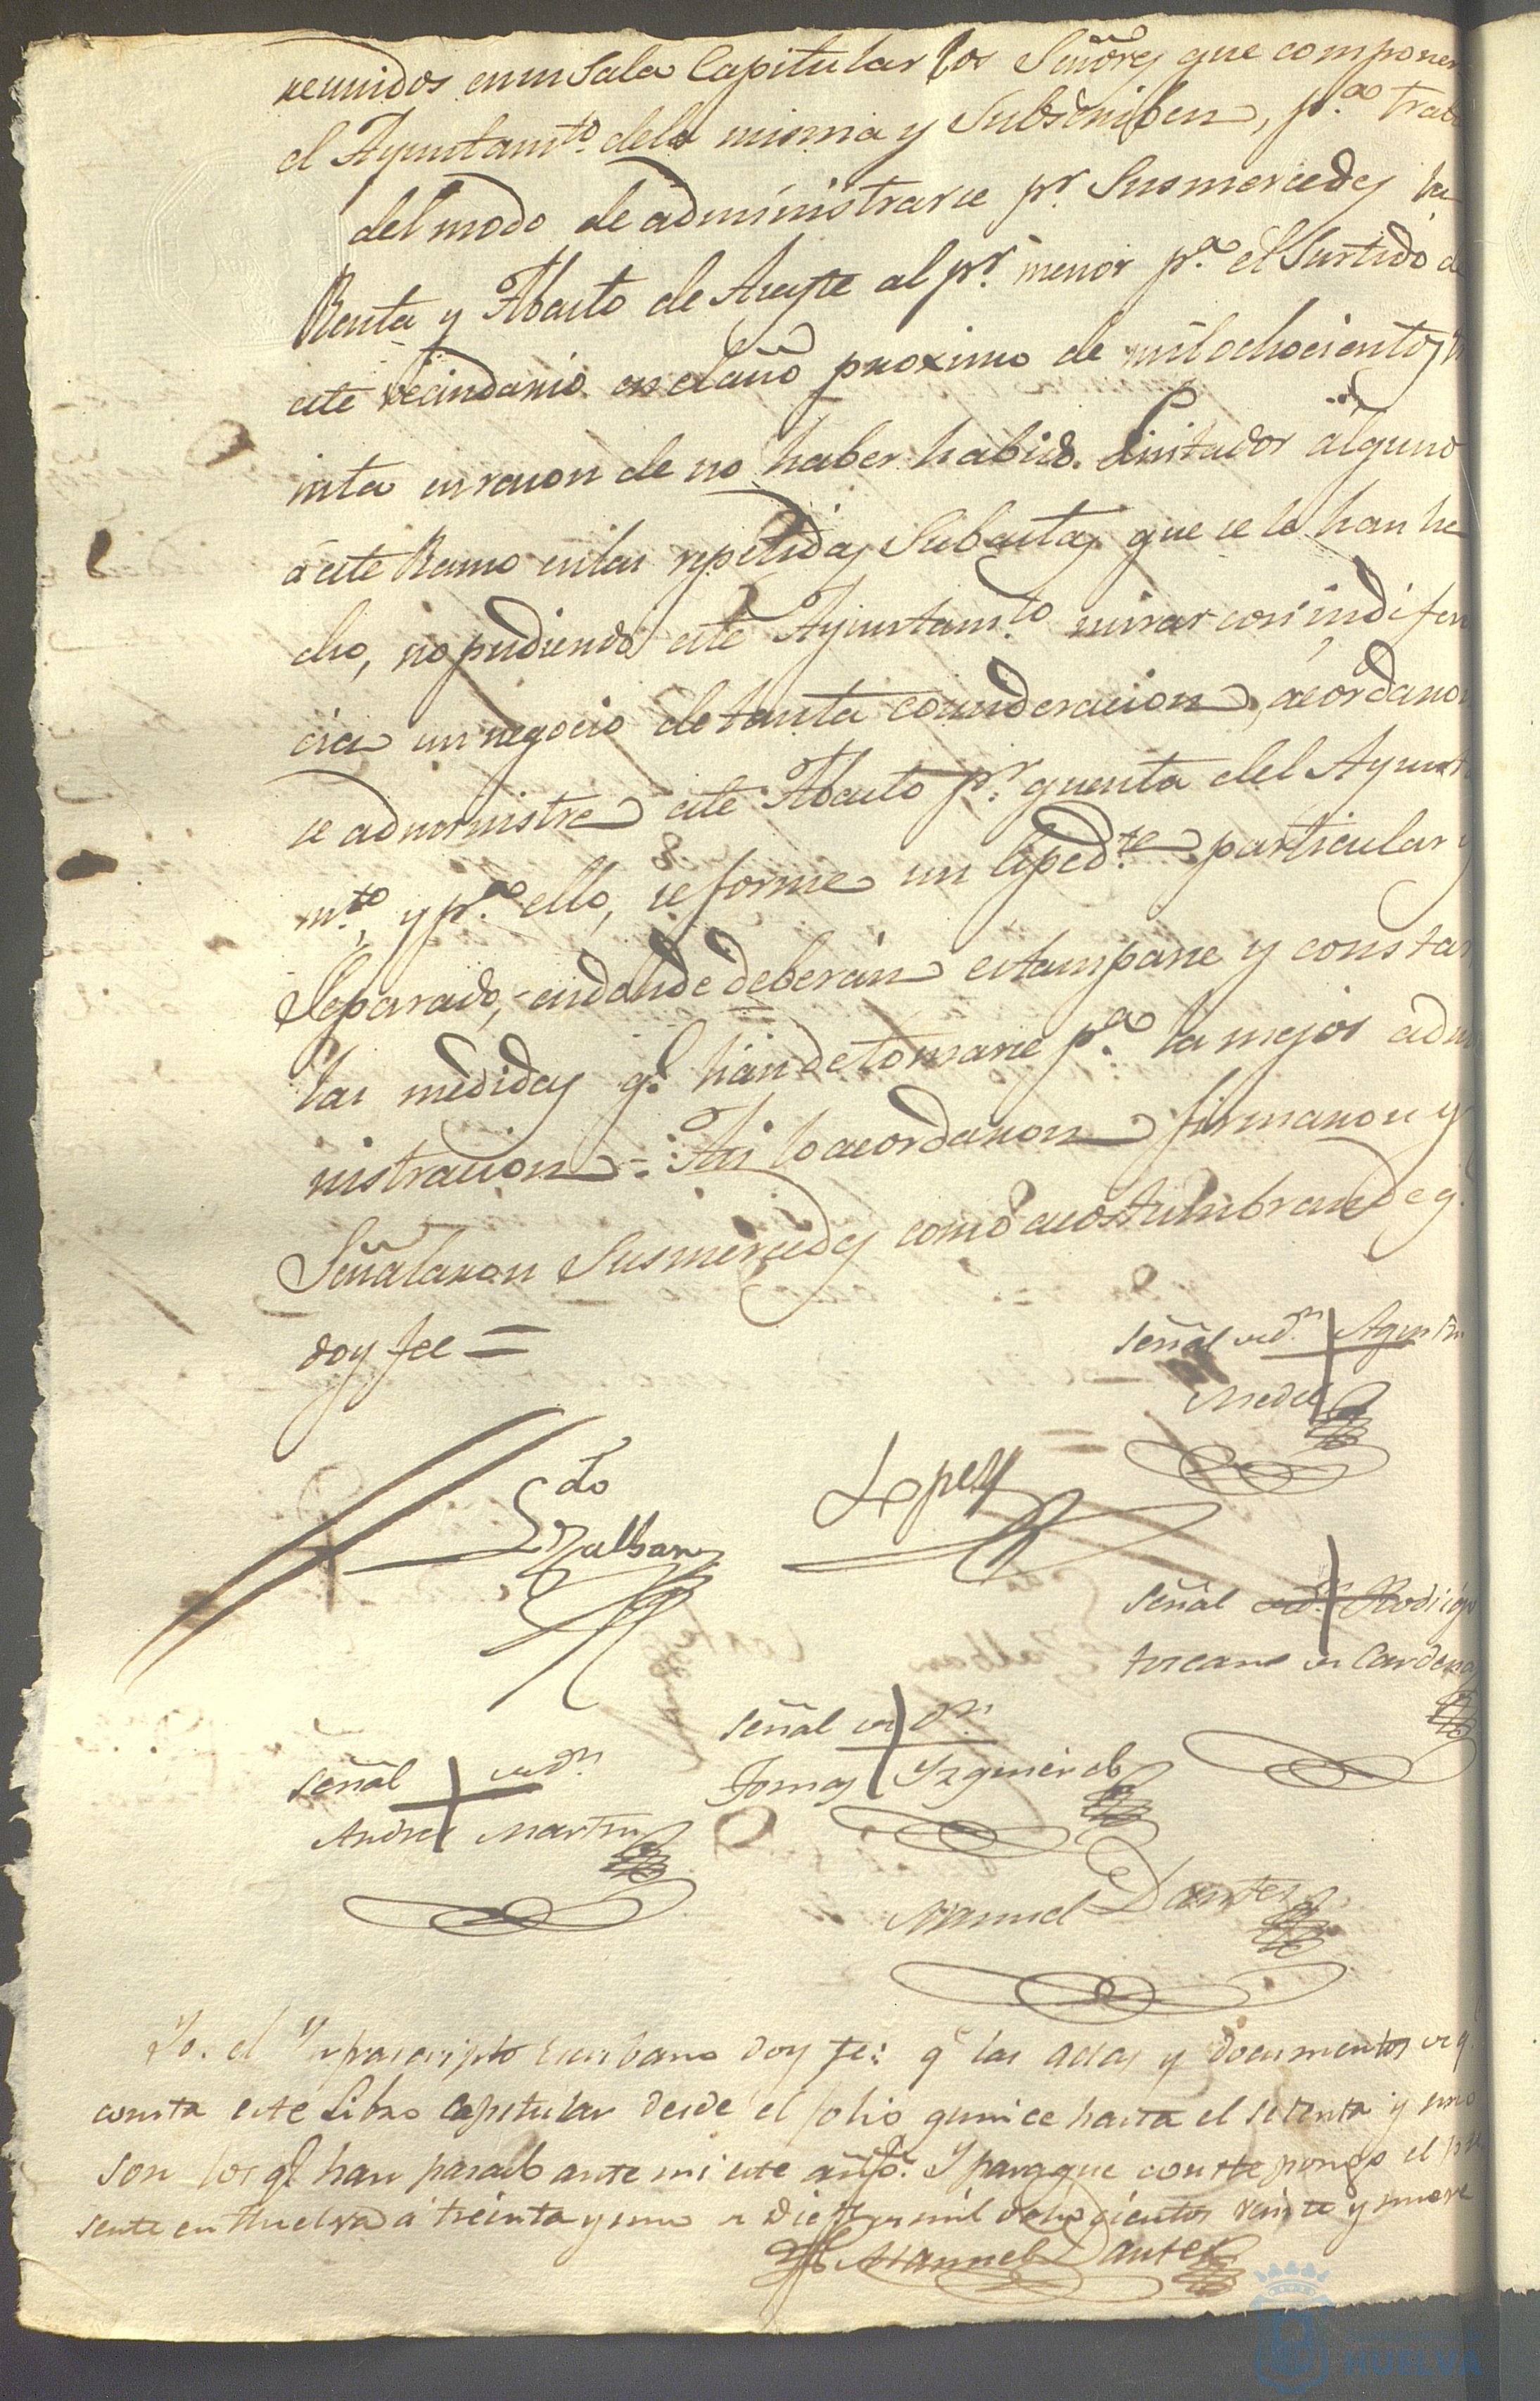 reunidos en su Sala Capitular los Señores que componen
el Ayuntamto. dela misma y Subscriben, pa. trat
del modo de administrarse pr. Susmercedes la
Renta y Abasto de Aseyte al pr. menor pa. el Surtido d
este vecindario en el año proximo de mil ochocientos
inta en rason de no haber habido Lisitador alguno
a este Ramo en las repetidas Subastas que se le han he
cho, no pudiendo este Ayuntamto. mirar con indifer
cia un negocio de tanta consideracion, acordaron
se administre este Abasto pr. quenta del Ayunt
mto., y pa. ello, se forme un Expedte. particular y
Separado, en donde deberán estamparse y constar
las medidas q. han de tomarse pa. la mejor adm
nistracion = Asi lo acordaron firmaron y
Señalaron Susmercedes como acostumbran de q.
doy fee =
Señal de Dn. Agustin
Medel
Ldo.
Lopez
Señal de Dn. Rodrigo
toscano de Cardenas
Señal de Dn.
Tomas Yzquierdo
Señal de Dn.
Andres Martin
Manuel Dantes
Yo. el Ynfrascripto Escribano doy fe: q. las actas y documentos de q.
consta este Libro Capitular desde el folio quince hasta el setenta y uno
son los q. han pasado ante mi este año. Y para que conste pongo el pre
sente en Huelva á treinta y uno de Dice. de mil ochocientos veinte y nueve
Manuel Dantes
HUELVA